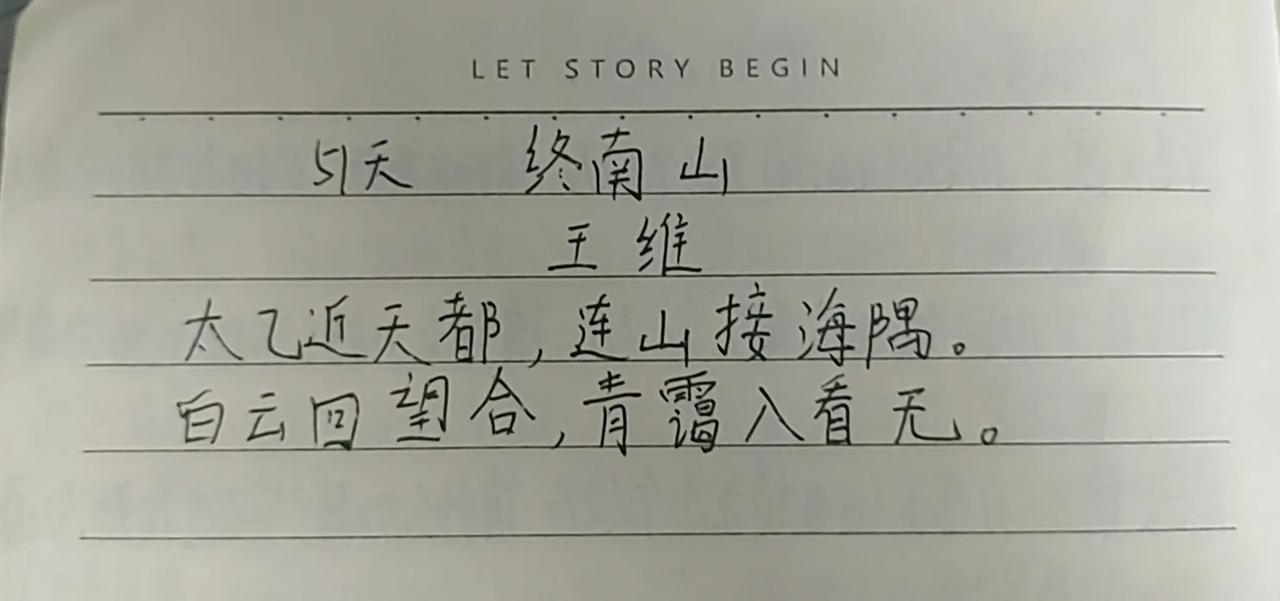 LET STORY BEGIN
51天 终南山
王维
太乙近天都,连山接海隅。
白云回望合,青霭入看无。